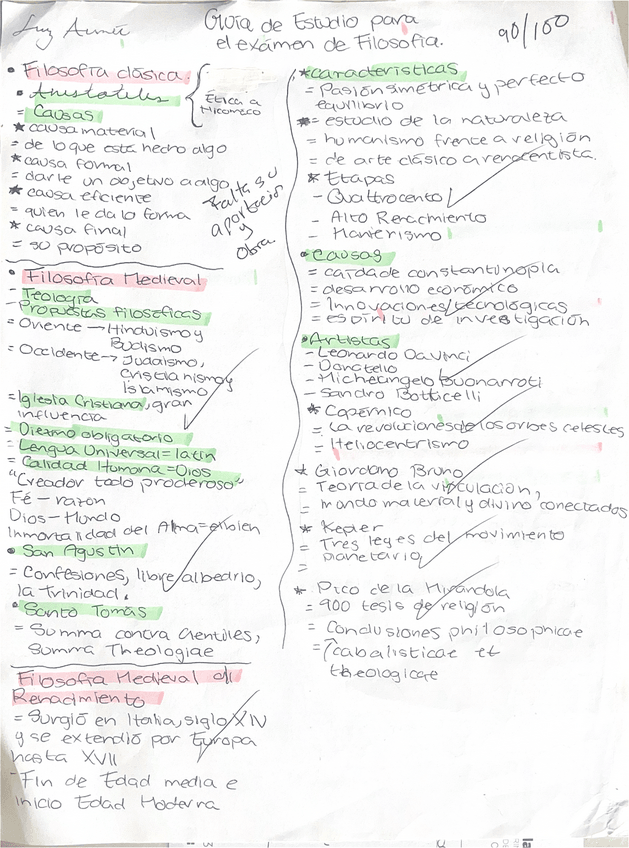 Luz Aimée
Guía de Estudio para
el exámen de Filosofía.
90/100
• Filosofía clásica:
• Aristóteles
Ética a
Nicómaco
= Causas
* causa material
= de lo que está hecho algo
* causa formal
= darle un objetivo a algo
* causa eficiente
= quien le da la forma
* causa final
= su propósito
Falta su
aportación
y
obra
• Filosofía Medieval
- Teología
- Propuestas filosóficas
= Oriente → Hinduismo y
Budismo
= Occidente → Judaísmo,
Cristianismo y
Islamismo
= Iglesia Cristiana, gran
influencia
= Diezmo obligatorio
= Lengua Universal = latín
= Calidad Humana = Dios
"Creador todo proderoso"
Fé - razón
Dios - Mundo
Inmortalidad del Alma = el bien
• San Agustín
= Confesiones, libre albedrío,
la Trinidad.
• Santo Tomás
= Summa contra Gentiles,
Summa Theologiae
Filosofía Medieval del
Renacimiento
= Surgió en Italia, siglo XIV
y se extendió por Europa
hasta XVII
- Fin de Edad media e
inicio Edad Moderna
* Características
= Pasión simétrica y perfecto
equilibrio
* = estudio de la naturaleza
= humanismo frente a religión
= de arte clásico a renacentista.
* Etapas
- Quattrocento
- Alto Renacimiento
- Manierismo
• Causas
= caída de constantinopla
= desarrollo económico
= Innovaciones tecnológicas
= espíritu de investigación
• Artistas
- Leonardo Da Vinci
- Donatello
- Michelangelo Buonarroti
- Sandro Botticelli
* Copérnico
= La revoluciones de los orbes celestes
= Heliocentrismo
* Giordano Bruno
= Teoría de la vinculación,
= mondo material y divino conectados
* Kepler
= Tres leyes del movimiento
= planetario
=
* Pico de la Mirándola
= 900 tesis de religión
= Conclusiones philosophicae
= cabalisticae et
theologicae